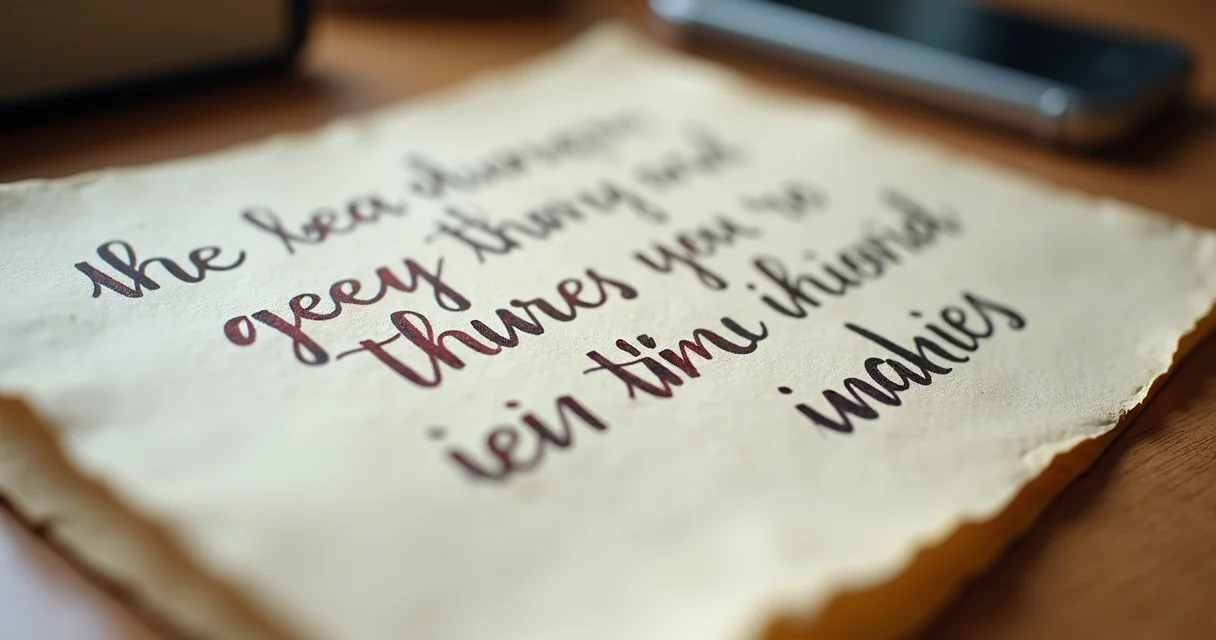 the kea
geey thovng and
thures you
iein time ihiovid
inahies